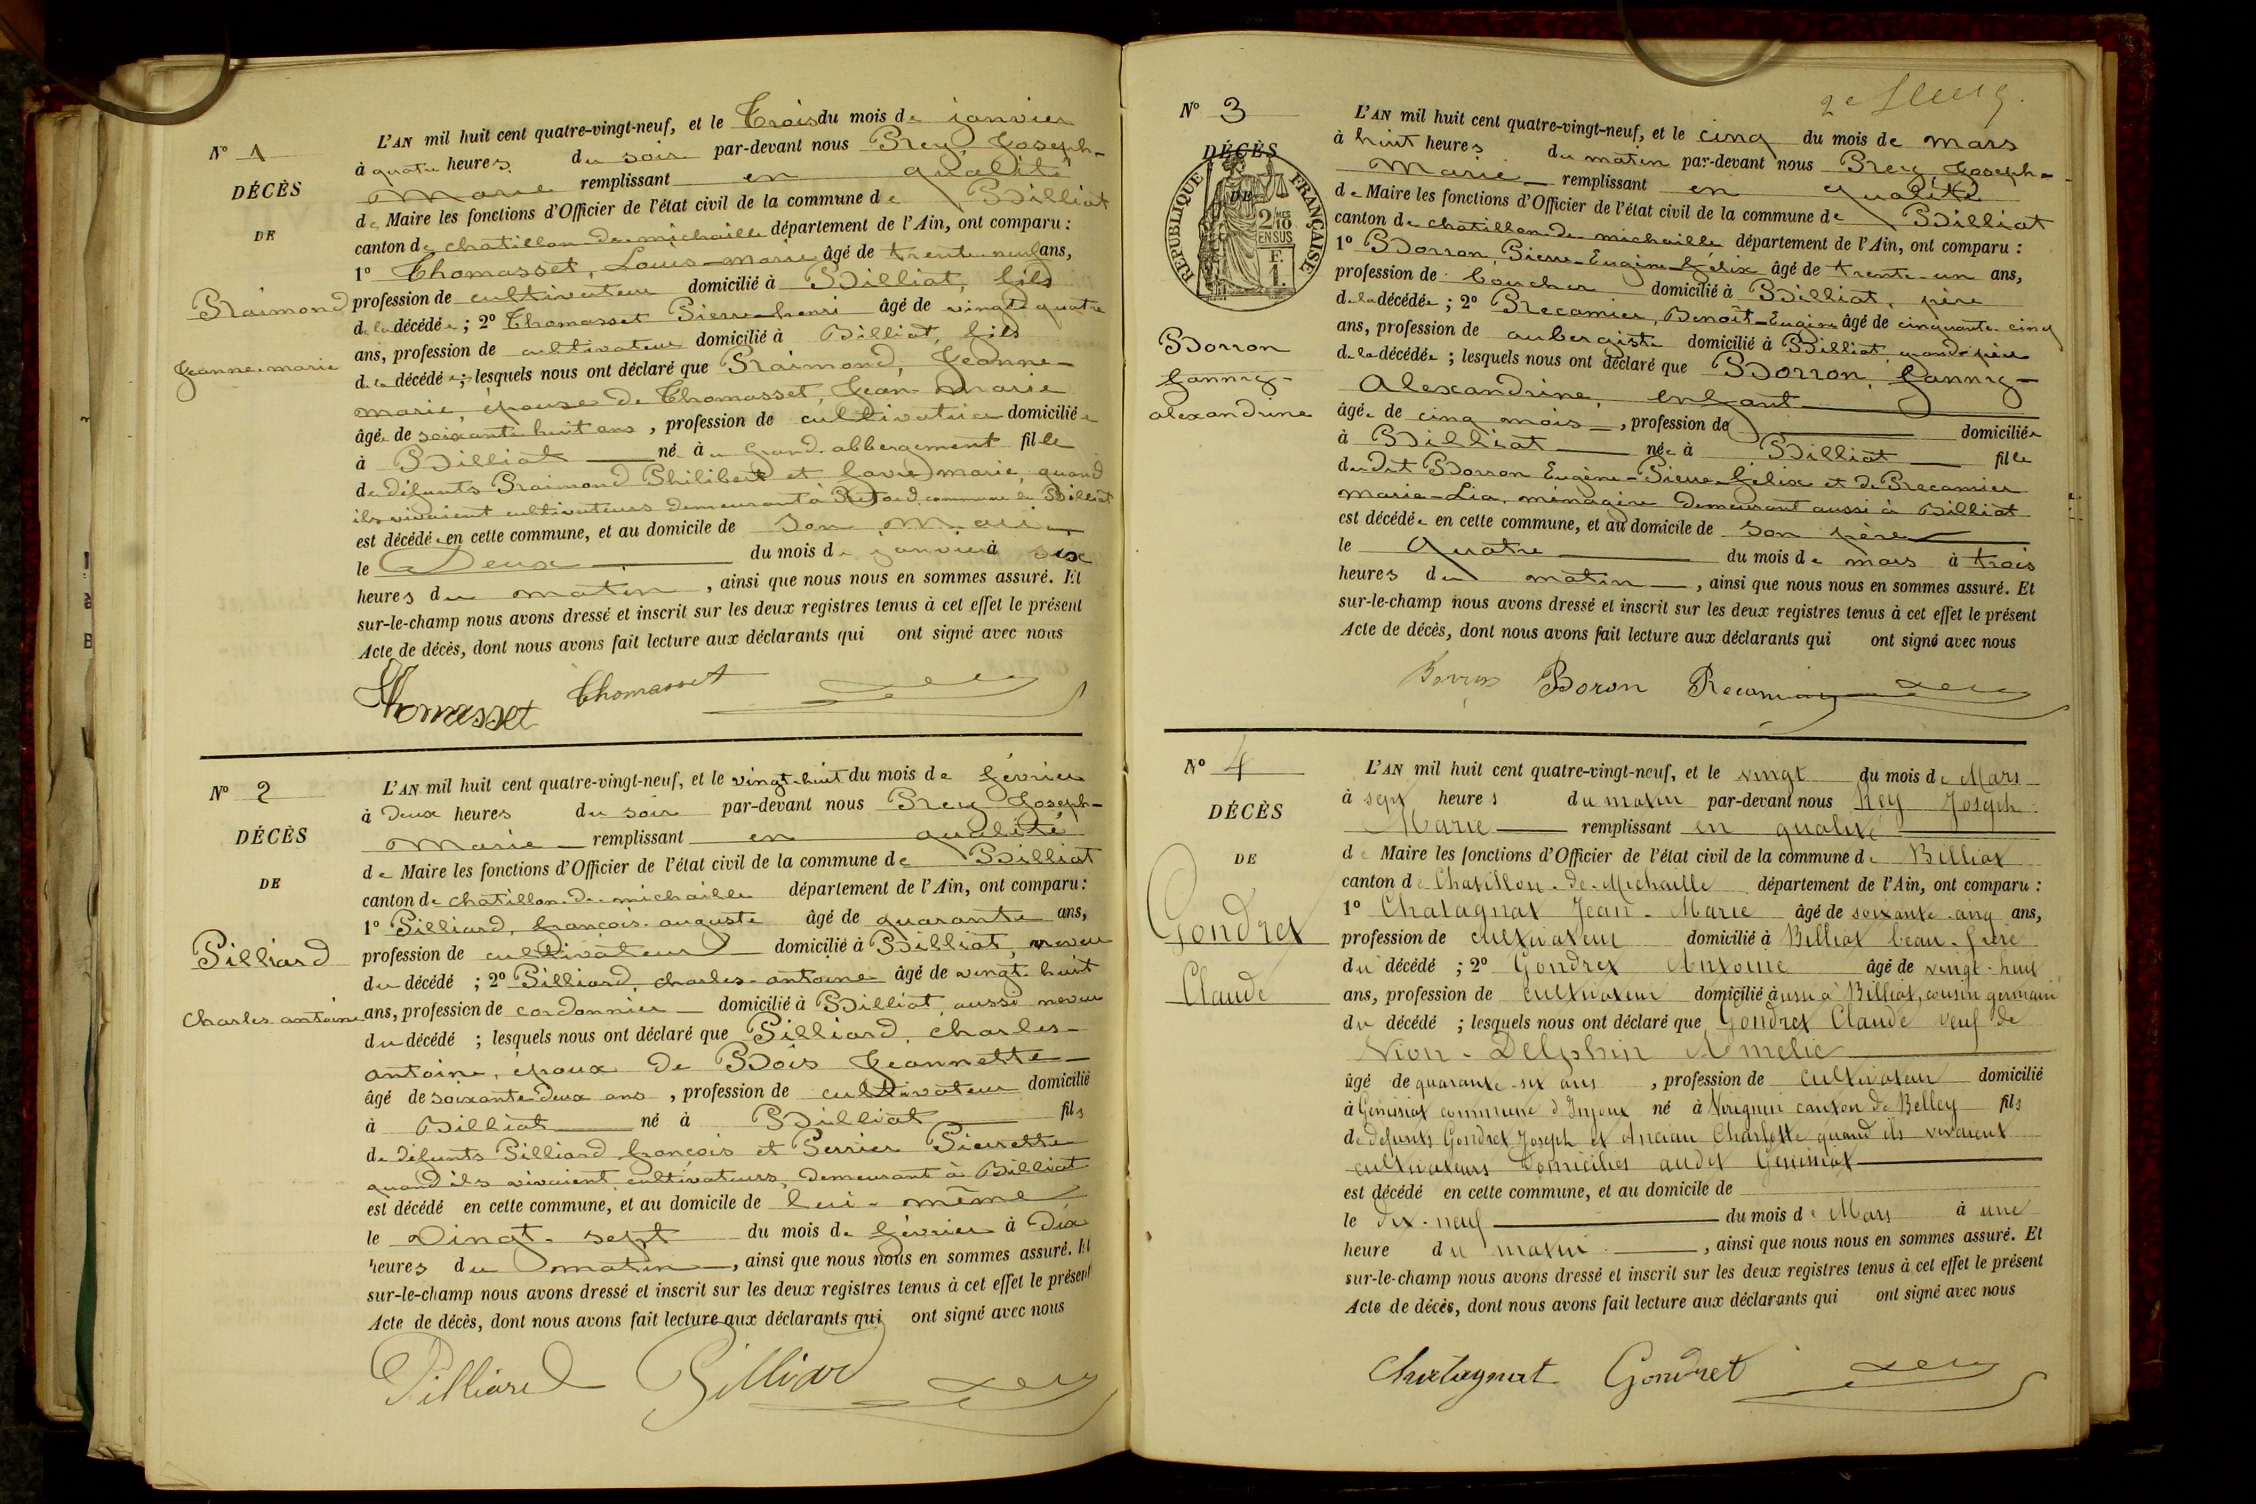 N° 1
DÉCÈS
DE
Raimond
Jeanne-marie
L'AN mil huit cent quatre-vingt-neuf, et le Trois du mois de janvier
à quatre heures du soir par-devant nous Rey, Joseph-
Marie remplissant en qualité
de Maire les fonctions d'Officier de l'état civil de la commune de Billiat
canton de chatillon-de-michaille département de l'Ain, ont comparu :
1° Thomasset, Louis-marie âgé de trente-neuf ans,
profession de cultivateur domicilié à Billiat, fils
de la décédée ; 2° Thomasset Pierre-henri âgé de vingt quatre
ans, profession de cultivateur domicilié à Billiat, fils
de la décédée ; lesquels nous ont déclaré que Raimond, Jeanne-
marie, épouse de Thomasset, Jean-marie
âgée de soixante huit ans, profession de cultivatrice domiciliée
à Billiat née à au grand-abbergement fille
de défunts Raimond Philibert et favre marie, quand
ils vivaient cultivateurs demeurant à commune de Billiat
est décédée en cette commune, et au domicile de son mari
le Deux du mois de janvier à six
heures du matin, ainsi que nous nous en sommes assuré. Et
sur-le-champ nous avons dressé et inscrit sur les deux registres tenus à cet effet le présent
Acte de décès, dont nous avons fait lecture aux déclarants qui ont signé avec nous
Thomasset Thomasset Rey
N° 2
DÉCÈS
DE
Pilliard
Charles antoine
L'AN mil huit cent quatre-vingt-neuf, et le vingt-huit du mois de février
à Deux heures du soir par-devant nous Rey Joseph-
Marie remplissant en qualité
de Maire les fonctions d'Officier de l'état civil de la commune de Billiat
canton de chatillon-de-michaille département de l'Ain, ont comparu :
1° Pilliard, françois-auguste âgé de quarante ans,
profession de cultivateur domicilié à Billiat, neveu
du décédé ; 2° Pilliard, charles-antoine âgé de vingt-huit
ans, profession de cordonnier domicilié à Billiat, aussi neveu
du décédé ; lesquels nous ont déclaré que Pilliard, charles-
antoine, époux de Bois Jeannette
âgé de soixante deux ans, profession de cultivateur domicilié
à Billiat né à Billiat fils
de défunts Pilliard françois et Perrier Pierrette
quand ils vivaient cultivateurs, demeurant à Billiat
est décédé en cette commune, et au domicile de lui-même
le Vingt-sept du mois de février à dix
heures du matin, ainsi que nous nous en sommes assuré. Et
sur-le-champ nous avons dressé et inscrit sur les deux registres tenus à cet effet le présent
Acte de décès, dont nous avons fait lecture aux déclarants qui ont signé avec nous
Pilliard Pilliard Rey
N° 3
DÉCÈS
DE
RÉPUBLIQUE FRANÇAISE
2 10
EN SUS
F.
1
Borron
fanny-
alexandrine
L'AN mil huit cent quatre-vingt-neuf, et le cinq du mois de mars
à huit heures du matin par-devant nous Rey Joseph-
Marie remplissant en qualité
de Maire les fonctions d'Officier de l'état civil de la commune de Billiat
canton de chatillon-de-michaille département de l'Ain, ont comparu :
1° Borron, Pierre-Eugène-félix âgé de trente-un ans,
profession de boucher domicilié à Billiat, père
de la décédée ; 2° Recamier, Benoît-Eugène âgé de cinquante-cinq
ans, profession de aubergiste domicilié à Billiat grand-père
de la décédée ; lesquels nous ont déclaré que Borron, fanny-
Alexandrine, enfant
âgée de cinq mois, profession de domiciliée
à Billiat née à Billiat fille
du dit Borron Eugène-Pierre-félix et de Recamier
Marie-Lia, ménagère demeurant aussi à Billiat
est décédée en cette commune, et au domicile de son père
le Quatre du mois de mars à trois
heures du matin, ainsi que nous nous en sommes assuré. Et
sur-le-champ nous avons dressé et inscrit sur les deux registres tenus à cet effet le présent
Acte de décès, dont nous avons fait lecture aux déclarants qui ont signé avec nous
Borron Boron Recamier Rey
N° 4
DÉCÈS
DE
Gondret
Claude
L'AN mil huit cent quatre-vingt-neuf, et le vingt du mois de Mars
à sept heures du matin par-devant nous Rey Joseph-
Marie remplissant en qualité
de Maire les fonctions d'Officier de l'état civil de la commune de Billiat
canton de Chatillon-de-Michaille département de l'Ain, ont comparu :
1° Chatagnat Jean-Marie âgé de soixante-cinq ans,
profession de cultivateur domicilié à Billiat beau-frère
du décédé ; 2° Gondret Antoine âgé de vingt-huit
ans, profession de cultivateur domicilié aussi à Billiat, cousin germain
du décédé ; lesquels nous ont déclaré que Gondret Claude veuf de
Nion-Delphin Amélie
âgé de quarante-six ans, profession de cultivateur domicilié
à Génissiat commune d'Injoux né à Virignin canton de Belley fils
de défunts Gondret Joseph et Ancian Charlotte quand ils vivaient
cultivateurs domiciliés audit Génissiat
est décédé en cette commune, et au domicile de
le dix-neuf du mois de Mars à une
heure du matin, ainsi que nous nous en sommes assuré. Et
sur-le-champ nous avons dressé et inscrit sur les deux registres tenus à cet effet le présent
Acte de décès, dont nous avons fait lecture aux déclarants qui ont signé avec nous
Chatagnat Gondret Rey